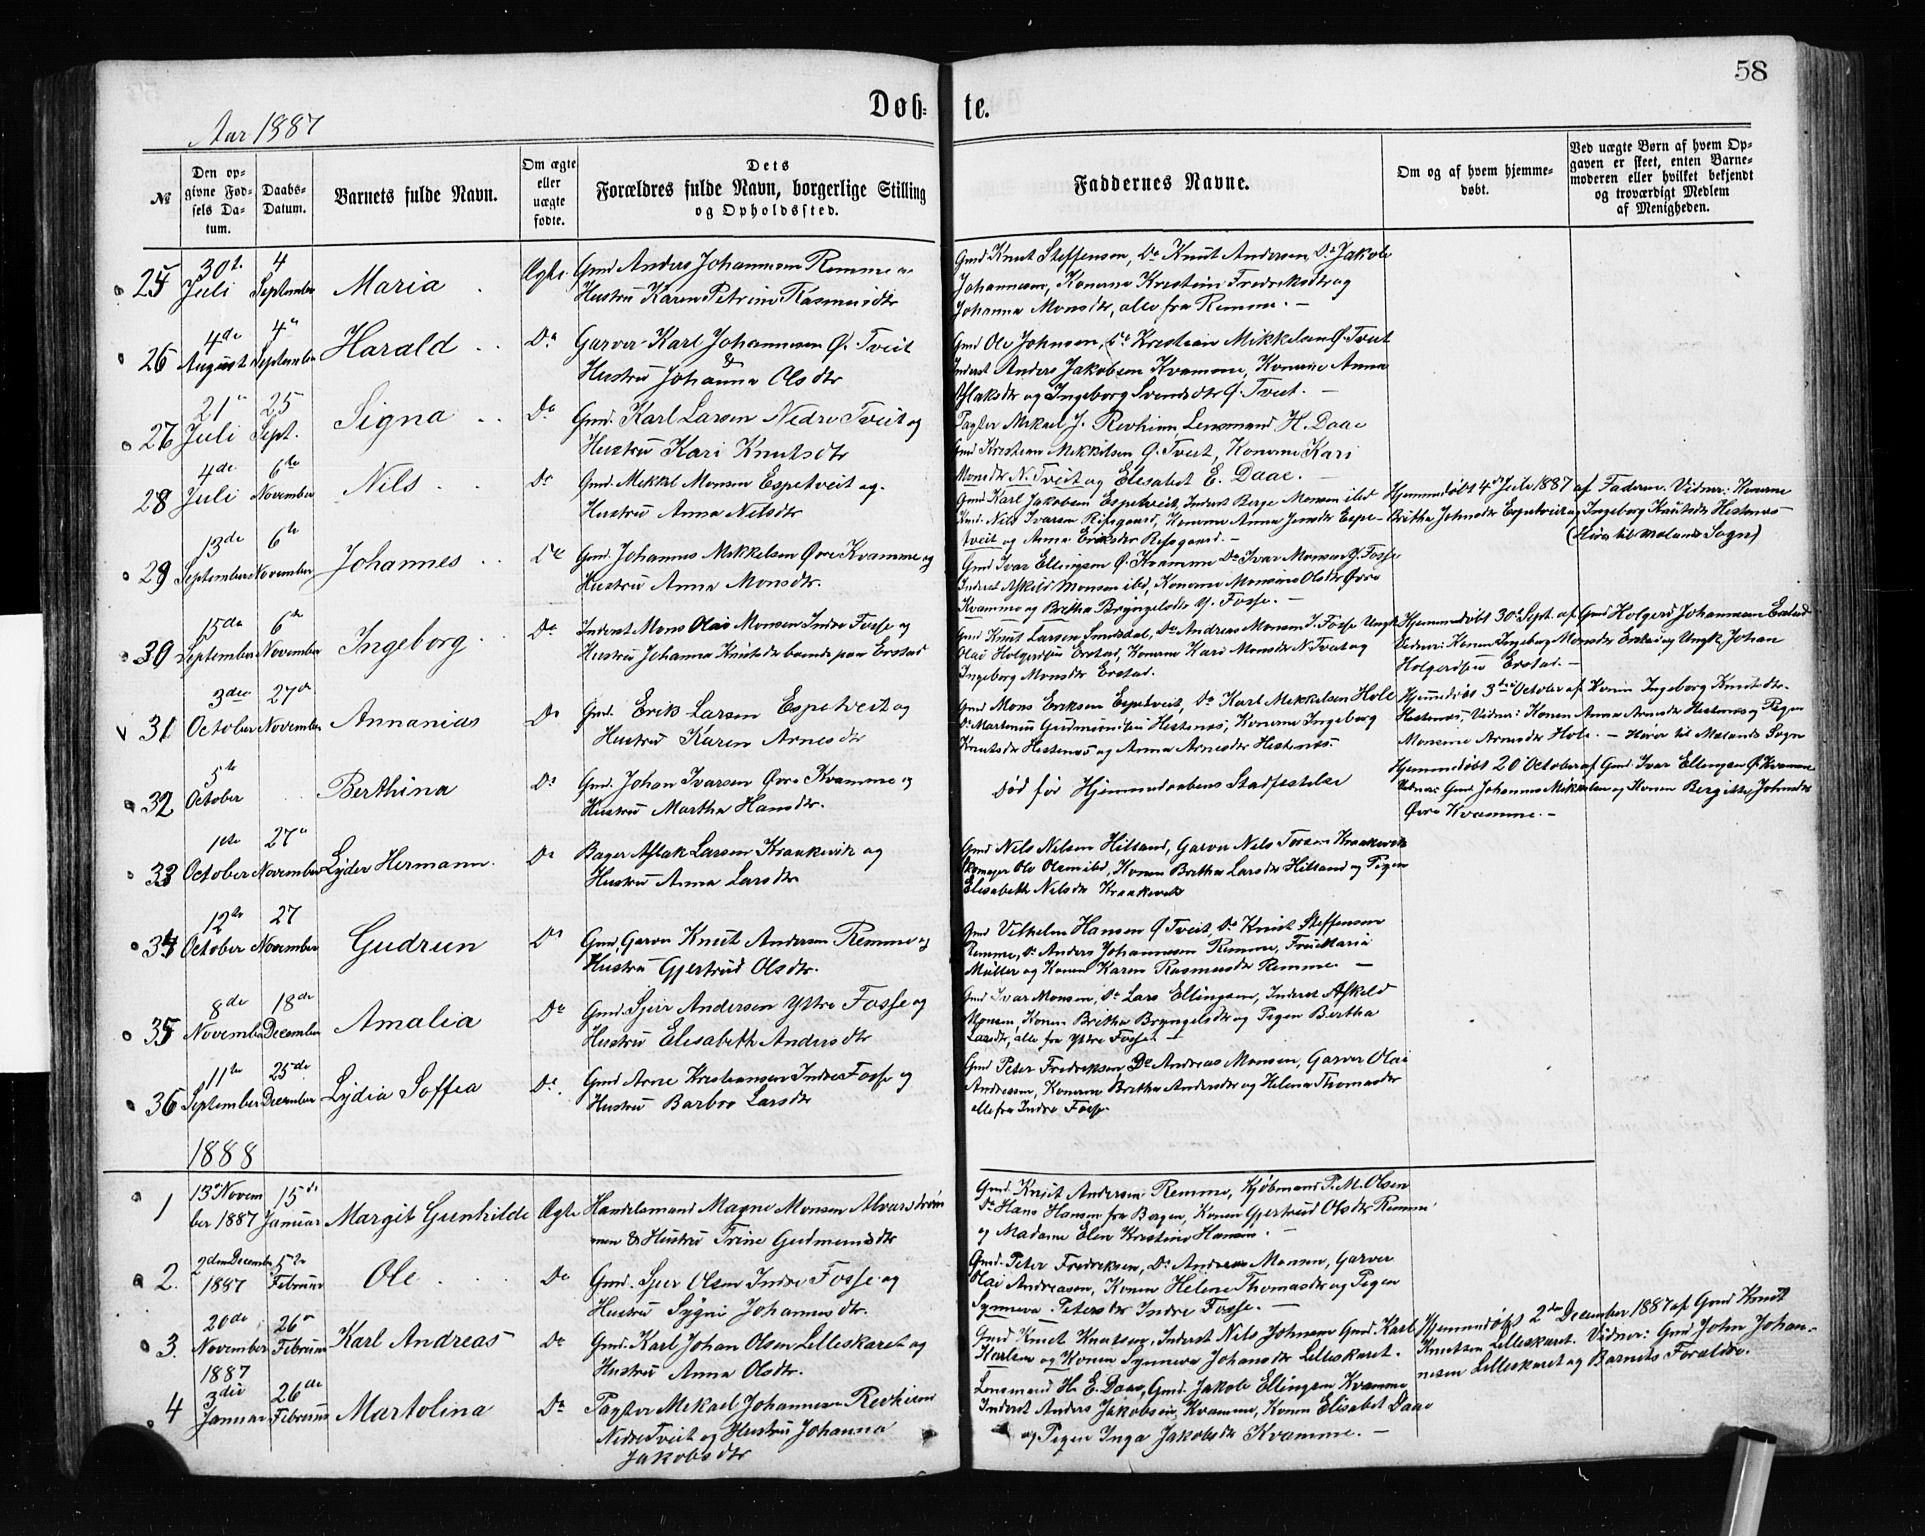 58
Døb- te.
Aar 1887
№ | Den opgivne Fødsels Datum. | Daabs-Datum. | Barnets fulde Navn. | Om ægte eller uægte fødte. | Dets Forældres fulde Navn, borgerlige Stilling og Opholdssted. | Faddernes Navne. | Om og af hvem hjemmedøbt. | Ved uægte Børn af hvem Opgaven er skeet, enten Barnemoderen eller hvilket bekjendt og troværdigt Medlem af Menigheden.
25 30te Juli 4 September Maria Ægte Gmd Anders Johannesen Remme og
Hustru Karen Petrine Rasmusdtr
Gmd Knut Steffenson, Do Knut Andersen, Do Jakob
Johannesen, Konerne Kristine Fredriksdtr og
Johanna Monsdtr, alle fra Remme. –
26 4de August 4de September Harald Do Garver Karl Johannesen Ø. Tveit
& Hustru Johanna Olsdtr
Gmd Ole Johnsen, Do Kristian Mikkelsen Ø. Tveit
Inderst Anders Jakobsen Kvamme, Konerne Anna
Aslaksdtr og Ingeborg Svendsdtr Ø. Tveit. –
27 21de Juli 25 Sept. Signa Do Gmd. Karl Larsen Nedre Tveit og
Hustru Kari Knutsdtr
Pagter Mikael J. Revheim Lensmand H. Daae
Gmd Kristian Mikkelsen Ø. Tveit, Konerne Kari
Monsdtr N. Tveit og Elisabet E. Daae. –
28 4de Juli 6te November Nils Do Gmd. Mikkel Monsen Espetveit og
Hustru Anna Nilsdtr
Gmd Karl Jakobsen Espetveit, Inderst Berge Monsen ibd
Gmd. Nils Ivarsen Ripsgaard, Konerne Anna Jensdtr Espe-
tveit og Anna Eriksdtr Ripsgaard. –
Hjemmedøbt 4de Juli 1887 af Faderen. Vidner: Konerne
Britha Johnsdtr Espetveit og Ingeborg Knutsdtr Hestenes –
(Hører til Molands Sogn)
29 13de September 6te November Johannes Do Gmd. Johannes Mikkelsen Øvre Kvamme og
Hustru Anna Monsdtr.
Gmd Ivar Ellingsen Ø. Kvamme Do Ivar Monsen Y. Fosse
Inderst Askild Monsen ibd, Konerne Monsine Olsdtr Øvre
Kvamme og Britha Bryngelsdtr Y. Fosse. –
30 15de September 6te November Ingeborg Do Inderst Mons Olai Monsen Indre Fosse og
Hustru Johanna Knutsdtr boende paa Erstad
Gmd Knut Larsen Smidsdal, Do Andreas Monsen I. Fosse Ungk
Olai Holgersen Erstad, Konerne Kari Monsdtr N. Tveit og
Ingeborg Monsdtr Erstad.
Hjemmedøbt 30te Sept. af Gmd Holgerd Johannesen Erstad
Vidner: Konen Ingeborg Monsdtr Erstad og Ungk Johan
Holgersen Erstad. –
31 3die October 27de November Annanias Do Gmd. Erik Larsen Espetveit og
Hustru Karen Arnesdtr
Gmd Mons Eriksen Espetveit, Do Karl Mikkelsen Hole
Do Martinus Gudmundsen Hestenes, Konerne Ingeborg
Knutsdtr Hestenes og Anna Arnesdtr Hestenes.
Hjemmedøbt 3die October af Konen Ingeborg Knutsdtr.
Hestenes, Vidner: Konen Anna Arnesdtr Hestenes og Pigen
Monsine Arnesdtr Hole. – Hører til Molands Sogn
32 5te October Berthina Do Gmd. Johan Ivarsen Øvre Kvamme og
Hustru Martha Hansdtr.
Død før Hjemmedaabens Stadfestelse
Hjemmedøbt 20 October af Gmd. Ivar Ellingsen Ø. Kvamme
Vidner: Gmd. Johannes Mikkelsen og Konen Bergitte Johnsdtr
Øvre Kvamme. –
33 1ste October 27de November Lyder Hermann Do Bager Aslak Larsen Kraakevik og
Hustru Anna Larsdtr
Gmd Nils Nilsen Hilland, Garver Nils Kraakevik
Skomager Ole Olsen ibd, Konen Britha Larsdtr Hilland og Pigen
Elisabeth Nilsdtr Kraakevik
34 12te October 27 November Gudrun Do Gmd. Garver Knut Andersen Remme og
Hustru Gjertrud Olsdtr.
Gmd Vilhelm Hansen Ø Tveit, Do Knut Steffenson
Remme, Do Anders Johannesen Remme, Frue Maria
Müller og Konen Karen Rasmusdtr Remme. –
35 8de November 18de December Amalia Do Gmd. Sjur Andersen Yttre Fosse og
Hustru Elisabeth Andersdtr
Gmd Ivar Monsen, Do Lars Ellingsen, Inderst Askild
Monsen, Konen Britha Bryngelsdtr og Pigen Bertha
Larsdtr, alle fra Yttre Fosse. –
36 11te September 25de December Lydia Soffia Do Gmd Arne Kristiansen Indre Fosse og
Hustru Barbro Larsdtr
Gmd Peter Fredriksen, Do Andreas Monsen, Garver Olai
Andreasen, Konerne Britha Andersdtr og Helena Thomasdtr
alle fra Indre Fosse.
1888
1 13de November 1887 15de Januar Margit Gunhilde Ægte Handelsmand Magne Monsen Alvarstrøm-
men & Hustru Trine Gudmundsdtr
Gmd. Knut Andersen Remme, Kjøbmand P. M. Olsen
Do Hans Hansen fra Bergen, Konen Gjertrud Olsdtr Remme
og Madame Elen Kristine Hansen. –
2. 2den December 1887 5te Februar Ole Do Gmd. Sjur Olsen Indre Fosse og
Hustru Sygni Johannesdtr.
Gmd. Peter Fredriksen, Do Andreas Monsen, Garver
Olai Andreasen, Konen Helene Thomasdtr og Pigen
Synneva Petersdtr Indre Fosse. –
3. 20de November 1887 26de Februar Karl Andreas Do Gmd. Karl Johan Olsen Lilleskaret og
Hustru Anna Olsdtr.
Gmd Knut Knutsen, Inderst Nils Johnsen Gmd. Karl
Karlsen og Konen Synneva Johansdtr Lilleskaret.
Hjemmedøbt 2den December 1887 af Gmd Knut
Knutsen Lilleskaret. Vidner: Gmd John Johan-
nesen Lilleskaret og Barnets Forældre.
4 3die Januar 26de Februar Martolina Do Pagter Mikael Johannesen Revheim
Nedre Tveit og Hustru Johanna
Jakobsdtr
Lensmand H. E. Daae, Gmd. Jakob Ellingsen Kvamme
Inderst Anders Jakobsen Kvamme, Konen Elisabet Daae
og Pigen Inga Jakobsdtr Kvamme. –